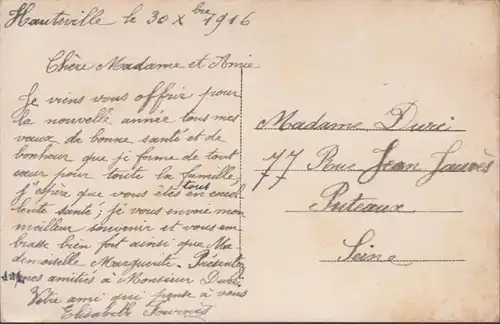 Hauteville le 30 Xbre 1916
Chère Madame et Amie
Je viens vous offrir pour
la nouvelle année tous mes
vœux de bonne santé et de
bonheur que je forme de tout
cœur pour toute la famille,
j'espère que vous êtes tous en excel
lente santé; je vous envoie mon
meilleur souvenir et vous em
brasse bien fort ainsi que Ma
demoiselle Marguerite. Présentez
mes amitiés à Monsieur
Votre amie qui pense à vous
Elisabeth
Madame
77 Rue Jean Jaurès
Puteaux
Seine